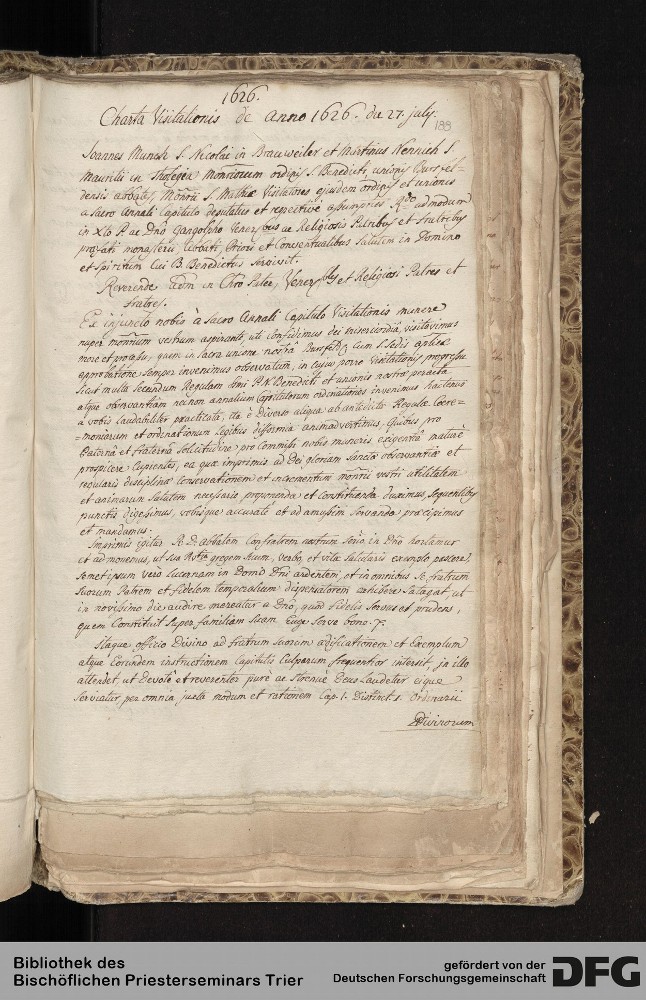 1626.
Charta Visitationis de anno 1626. du 27. july.
188
Joannes Munch S. Nicolai in Brauweiler et Martinus Nennich S.
Mauritii in Tholegia Monriorum ordinis S. Benedicti, unionis Bursfel-
densis abbates, Monrii S. Mathiæ Visitatores ejusdem ordinis et unionis
a sacro Annali Capitulo deputatus et respectivè assumptus Rdo admodum
in Xto P. ac Dno Gangolpho Venerabus ac Religiosis Patribus et fratribus
præfati monasterii Abbati, Priori et Conventualibus Salutem in Domino
et Spiritum cui B. Benedictus servivit.
Reverende adm in Chro Pater, Venerbles et Religiosi Patres et
fratres.
Ex injuncto nobis à Sacro Annali Capitulo Visitationis munere
nuper monrium vestrum aspirante, uti confidimus dei misericordiâ, visitavimus
more et probatu, quem in sacra unione nostrâ Bursfeld. cum S. Sedis aplicæ
approbatione semper invenimus observatum, in cujus porro Visitationis progressu
sicut multa secundum Regulam Smi P. N. Benedicti et unionis nostræ peracta
atque observantiam necnon annalium Capitulorum ordinationes invenimus hactenus
à vobis laudabiliter practitata, ita è diverso aliqua ab antedictæ Regulæ Cære-
=moniarum et ordinationum legibus difformia animadvertimus, Quibus pro
Paternâ et fraternâ sollicitudine pro Commissi nobis muneris exigentiâ maturè
prospicere cupientes, ea quæ imprimis ad Dei gloriam sanctæ observantiæ et
regularis disciplinæ conservationem et incrementum monrii vestri utilitatem
et animarum salutem necessaria proponenda et constituenda duximus, sequentibus
punctis digessimus, vobisque accuratè et ad amussim servanda præcipimus
et mandamus.
Imprimis igitur R. D. abbatem Confratrem nostrum seriò in Dno hortamur
et admonemus, ut sua gregem suum, verbo, et vitæ salutaris exemplo pascere,
semetipsum verò lucernam in Domo Dni ardentem, et in omnibus se fratrum
suorum Patrem et fidelem temporalium dispensatorem exhibere satagat, ut
in novissimo die audire mereatur a Dno, quod fidelis servus et prudens,
quem Constituit super familiam suam Euge serve bone. 7.
Itaque officio Divino ad fratrum suorum ædificationem et Exemplum
atque eorundem instructionem Capitulis Culparum frequentior intersit, in illo
attendet ut devotè et reverenter purè ac strenuè Deus Laudetur eique
Serviatur per omnia juxta modum et rationem Cap. 1. Distinct. 1. Ordinarii
Divinorum
Bibliothek des
Bischöflichen Priesterseminars Trier
gefördert von der
Deutschen Forschungsgemeinschaft
DFG